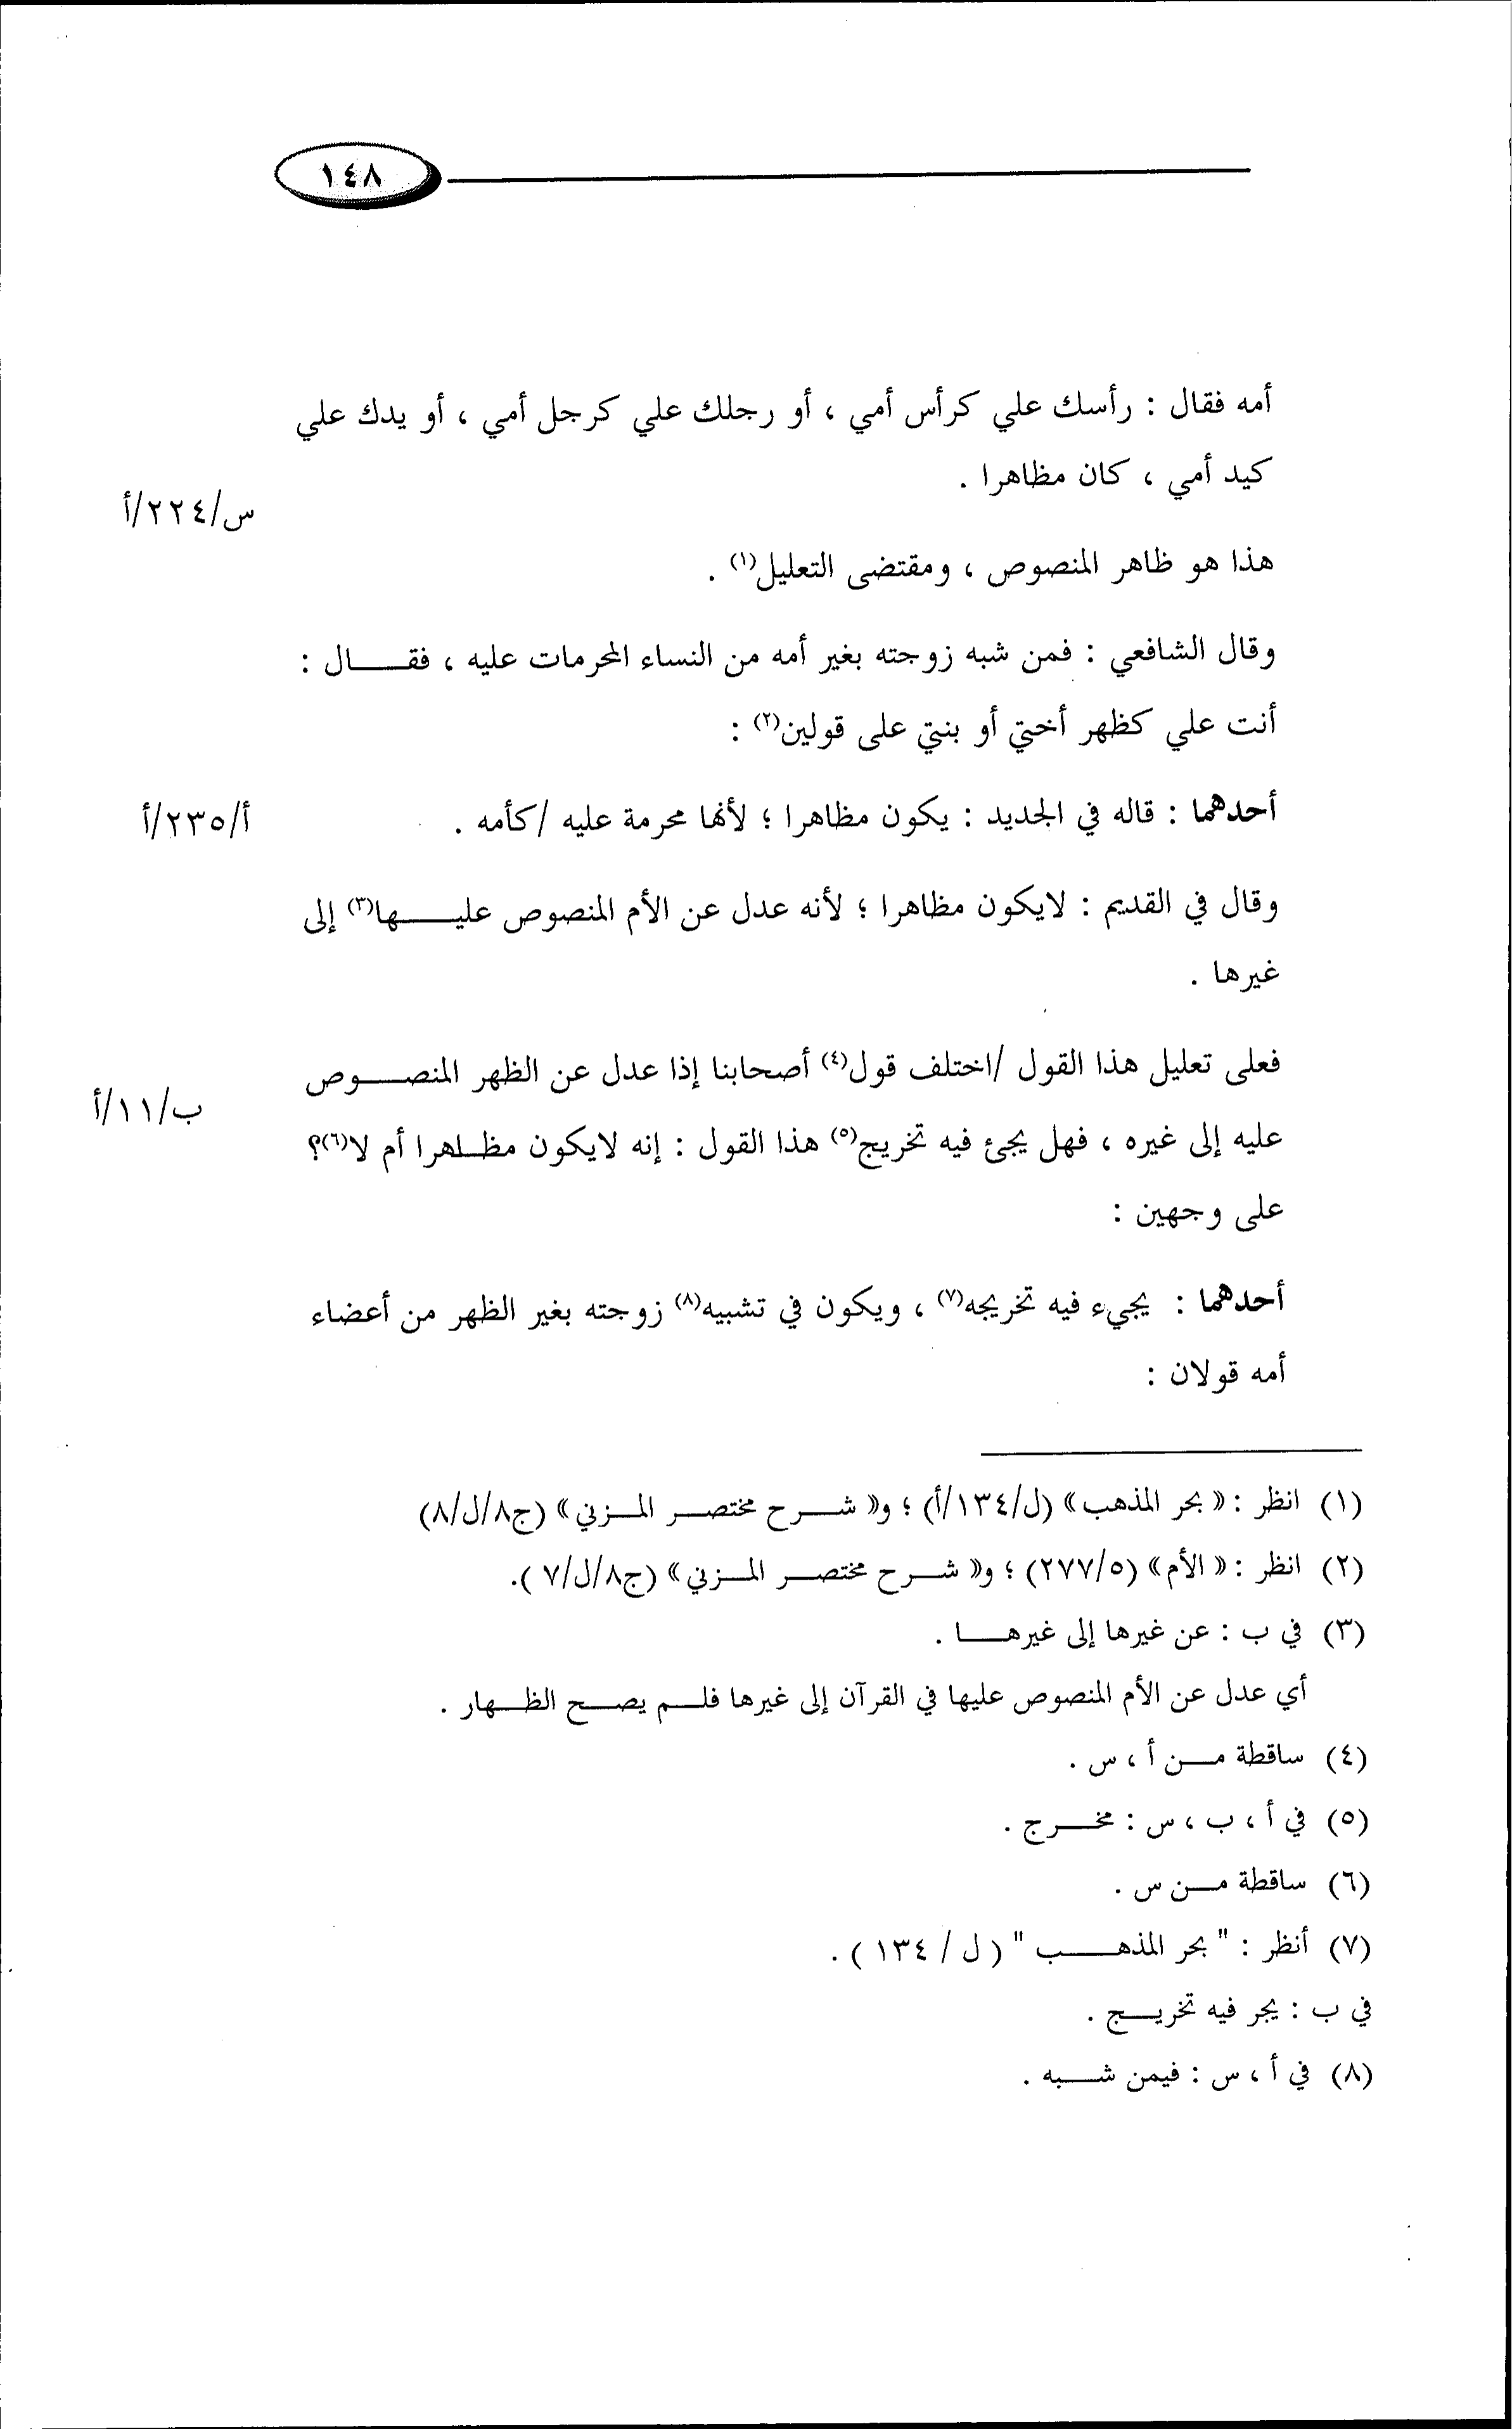 ١٤٨
أمه فقال : رأسك علي كرأس أمي ، أو رجلك علي كرجل أمي ، أو يدك علي
كيد أمي ، كان مظاهرا .
س/٢٢٤/أ
هذا هو ظاهر المنصوص ، ومقتضى التعليل(١) .
وقال الشافعي : فمن شبه زوجته بغير أمه من النساء المحرمات عليه ، فقـــــال :
أنت علي كظهر أختي أو بنتي على قولين(٢) :
أحدهما : قاله في الجديد : يكون مظاهرا ؛ لأنها محرمة عليه /كأمه .
أ/٢٣٥/أ
وقال في القديم : لايكون مظاهرا ؛ لأنه عدل عن الأم المنصوص عليـــــها(٣) إلى
غيرها .
فعلى تعليل هذا القول /اختلف قول(٤) أصحابنا إذا عدل عن الظهر المنصـــوص
ب/١١/أ
عليه إلى غيره ، فهل يجئ فيه تخريج(٥) هذا القول : إنه لايكون مظــاهرا أم لا(٦)؟
على وجهين :
أحدهما : يجيء فيه تخريجه(٧) ، ويكون في تشبيه(٨) زوجته بغير الظهر من أعضاء
أمه قولان :
(١) انظر : « بحر المذهب » (ل/١٣٤/أ) ؛ و« شـــرح مختصـــر المـــزني » (ج٨/ل/٨)
(٢) انظر : « الأم » (٢٧٧/٥) ؛ و« شـــرح مختصـــر المـــزني » (ج٨/ل/٧ ).
(٣) في ب : عن غيرها إلى غيرهـــا .
أي عدل عن الأم المنصوص عليها في القرآن إلى غيرها فلـــم يصـــح الظـــهار .
(٤) ساقطة مـــن أ ، س .
(٥) في أ ، ب ، س : مخـــرج .
(٦) ساقطة مـــن س .
(٧) أنظر : " بحر المذهـــــب " ( ل / ١٣٤ ) .
في ب : يجر فيه تخريـــج .
(٨) في أ ، س : فيمن شـــبه .